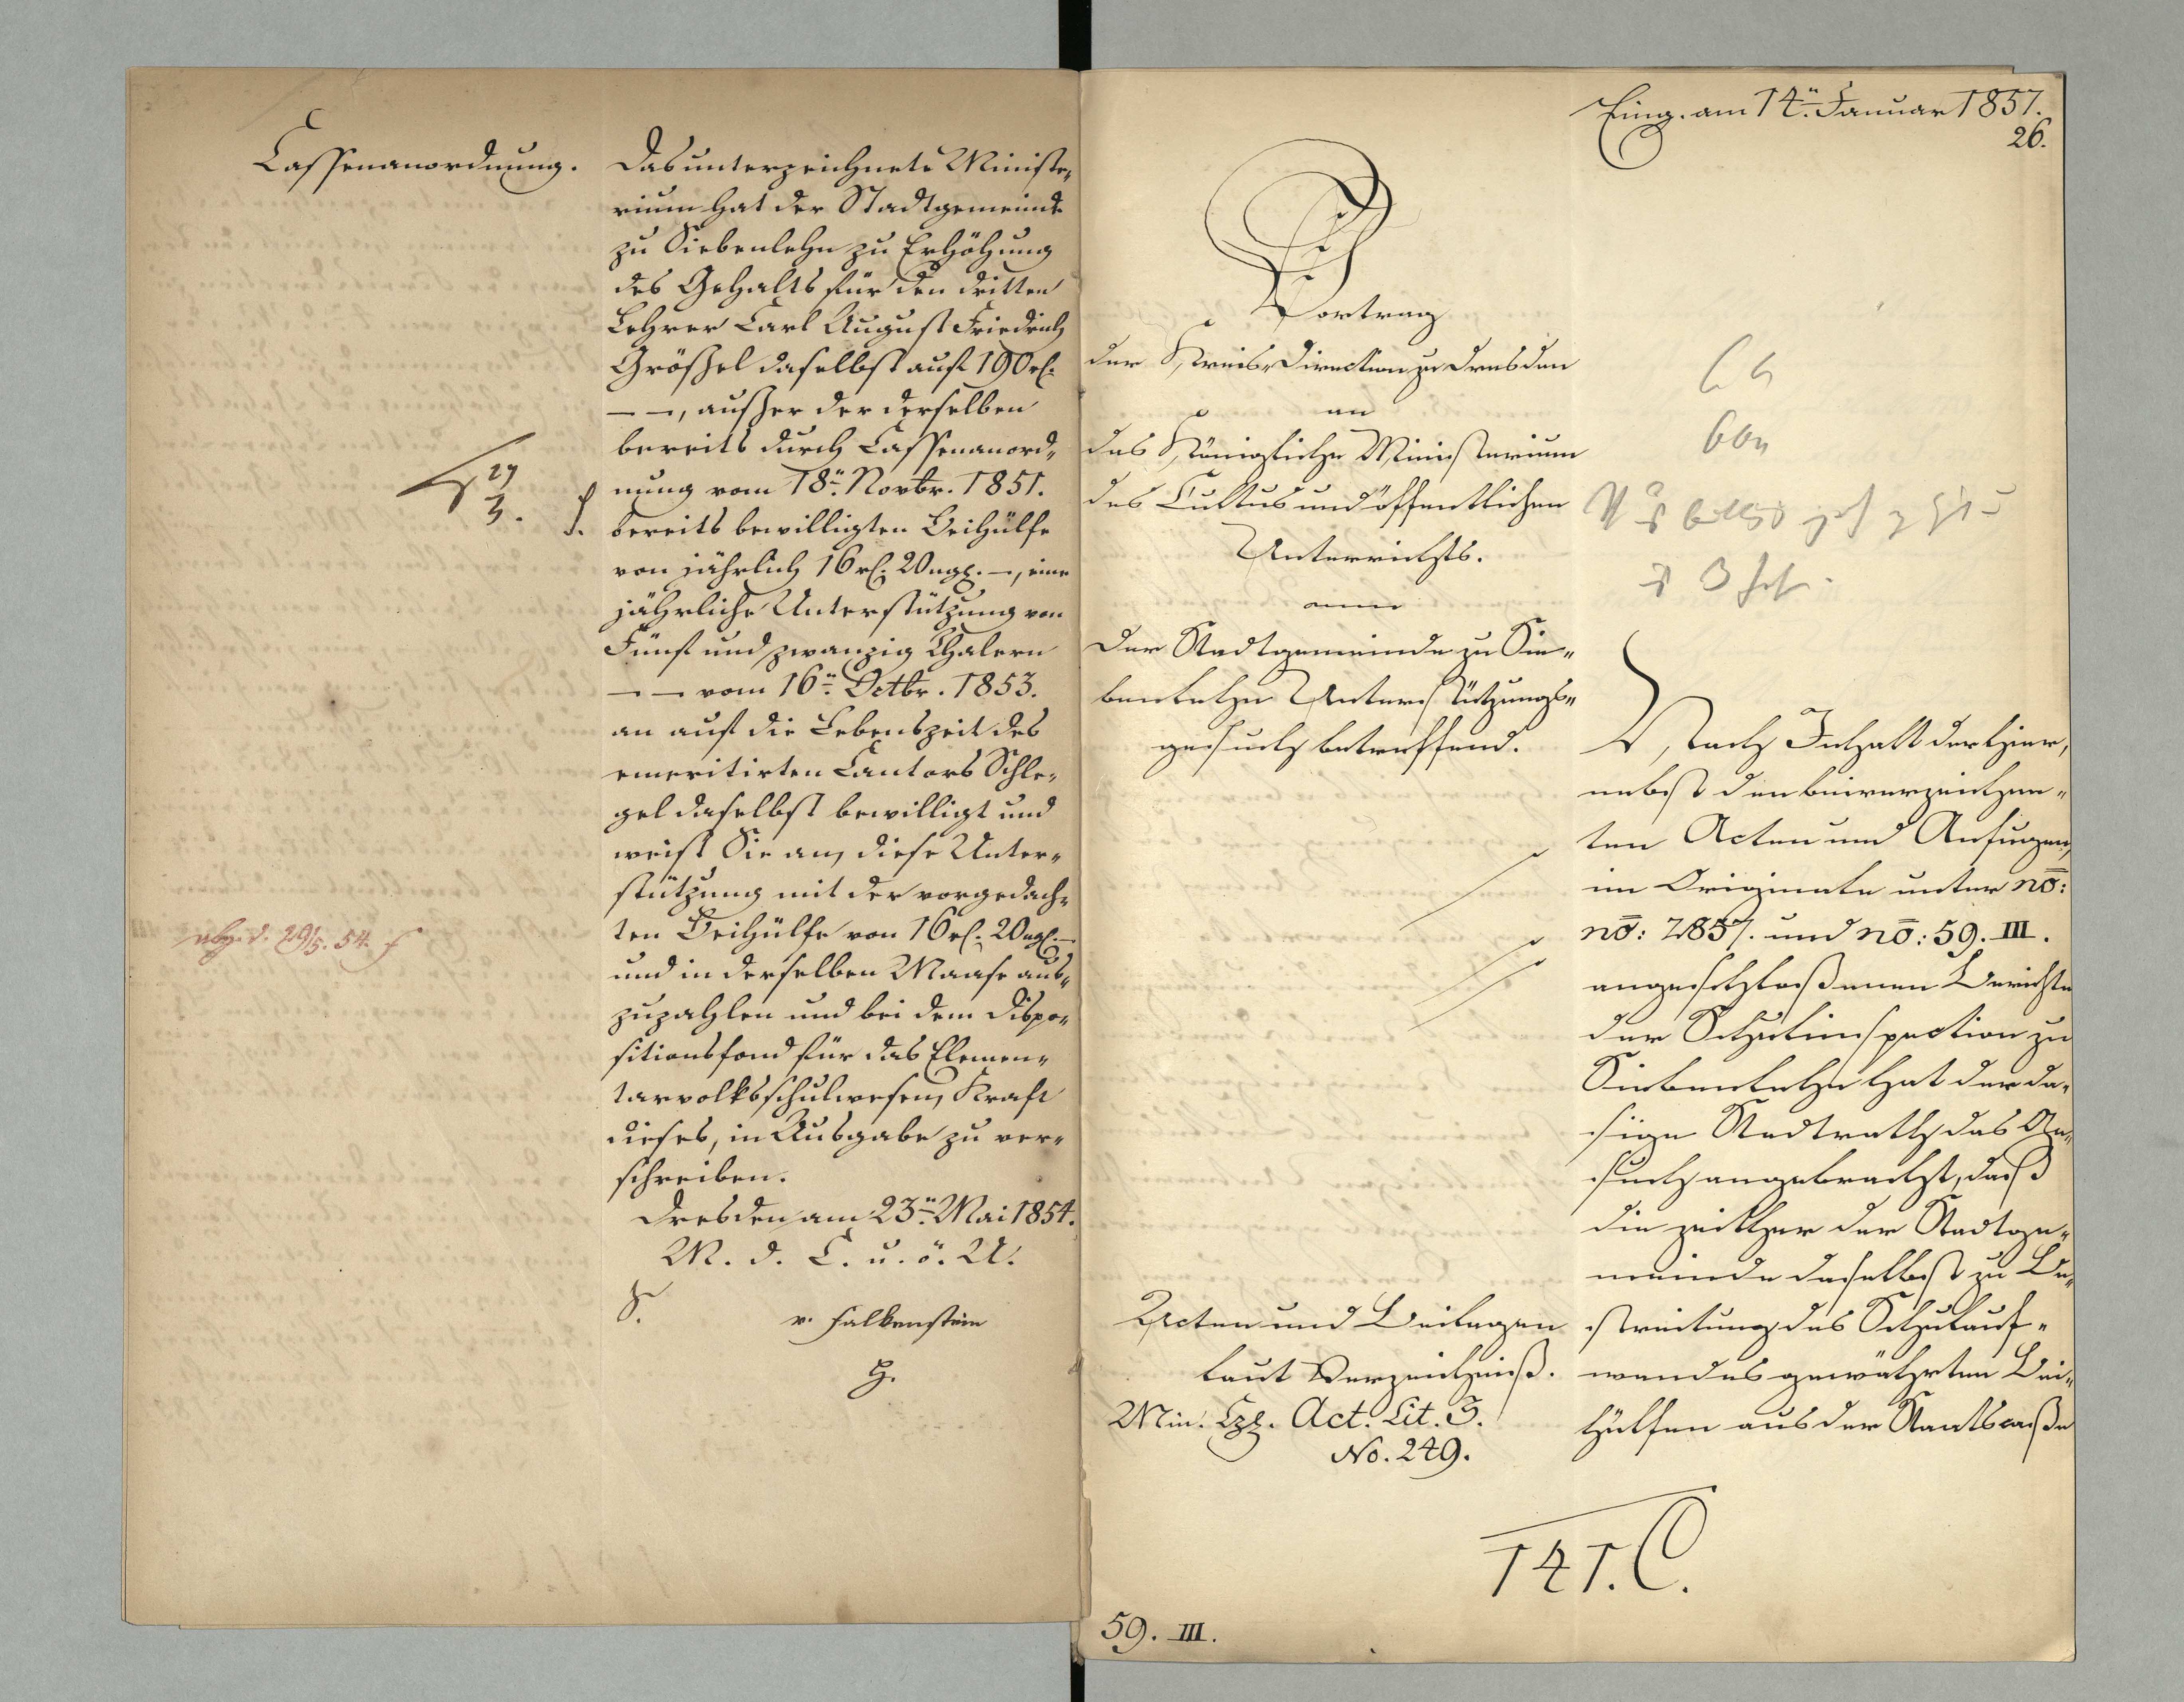 Cassenanordnung.
Das unterzeichnete Ministe-
rium hat der Stadtgemeinde
zu Siebenlehn zu Erhöhung
des Gehalts für den dritten
Lehrer Carl August Friedrich
Größel daselbst auf 190 rl.
— —, außer der derselben
bereits durch Cassenanord-
nung vom 18ⁿ Novbr. 1851.
bereits bewilligten Beihülfe
von jährlich 16 rl. 20 ngl. —, eine
jährliche Unterstützung von
Fünf und zwanzig Thalern
— — vom 16ⁿ Octbr. 1853.
an auf die Lebenszeit des
emeritirten Cantors Schle-
gel daselbst bewilligt und
weist Sie an, diese Unter-
stützung mit der vorgedach-
ten Beihülfe von 16 rl. 20 ngl. —
und in derselben Maase aus-
zuzahlen und bei dem Dispo-
sitionsfond für das Elemen-
tarvolksschulwesen, Kraft
dieses, in Ausgabe zu ver-
schreiben.
Dresden am 23ⁿ Mai 1854.
M. d. C. u. ö. U.
v. Falkenstein
27
3.
abg. d. 29/5. 54.
Eing. am 14ⁿ Januar 1857.
26.
Vortrag
der Kreis-Direction zu Dresden
an
das Königliche Ministerium
des Cultus und öffentlichen
Unterrichts.
Der Stadtgemeinde zu Sie-
benlehn Unterstützungs-
gesuch betreffend.
Acten und Beilagen
laut Verzeichniß.
Min. Czl. Act. Lit. S.
No. 249.
Nach Inhalt der hier-
nebst den beiverzeichne-
ten Acten und Anfugen,
im Originale unter no:
no: 2857. und no: 59. III.
angeschloßenen Berichte
der Schulinspection zu
Siebenlehn hat der da-
sige Stadtrath das Ge-
such angebracht, daß
die zeither der Stadtge-
meinde daselbst zu Be-
streitung des Schulauf-
wandes gewährten Bei-
hülfen aus der Staatscaße
141. C.
59. III.